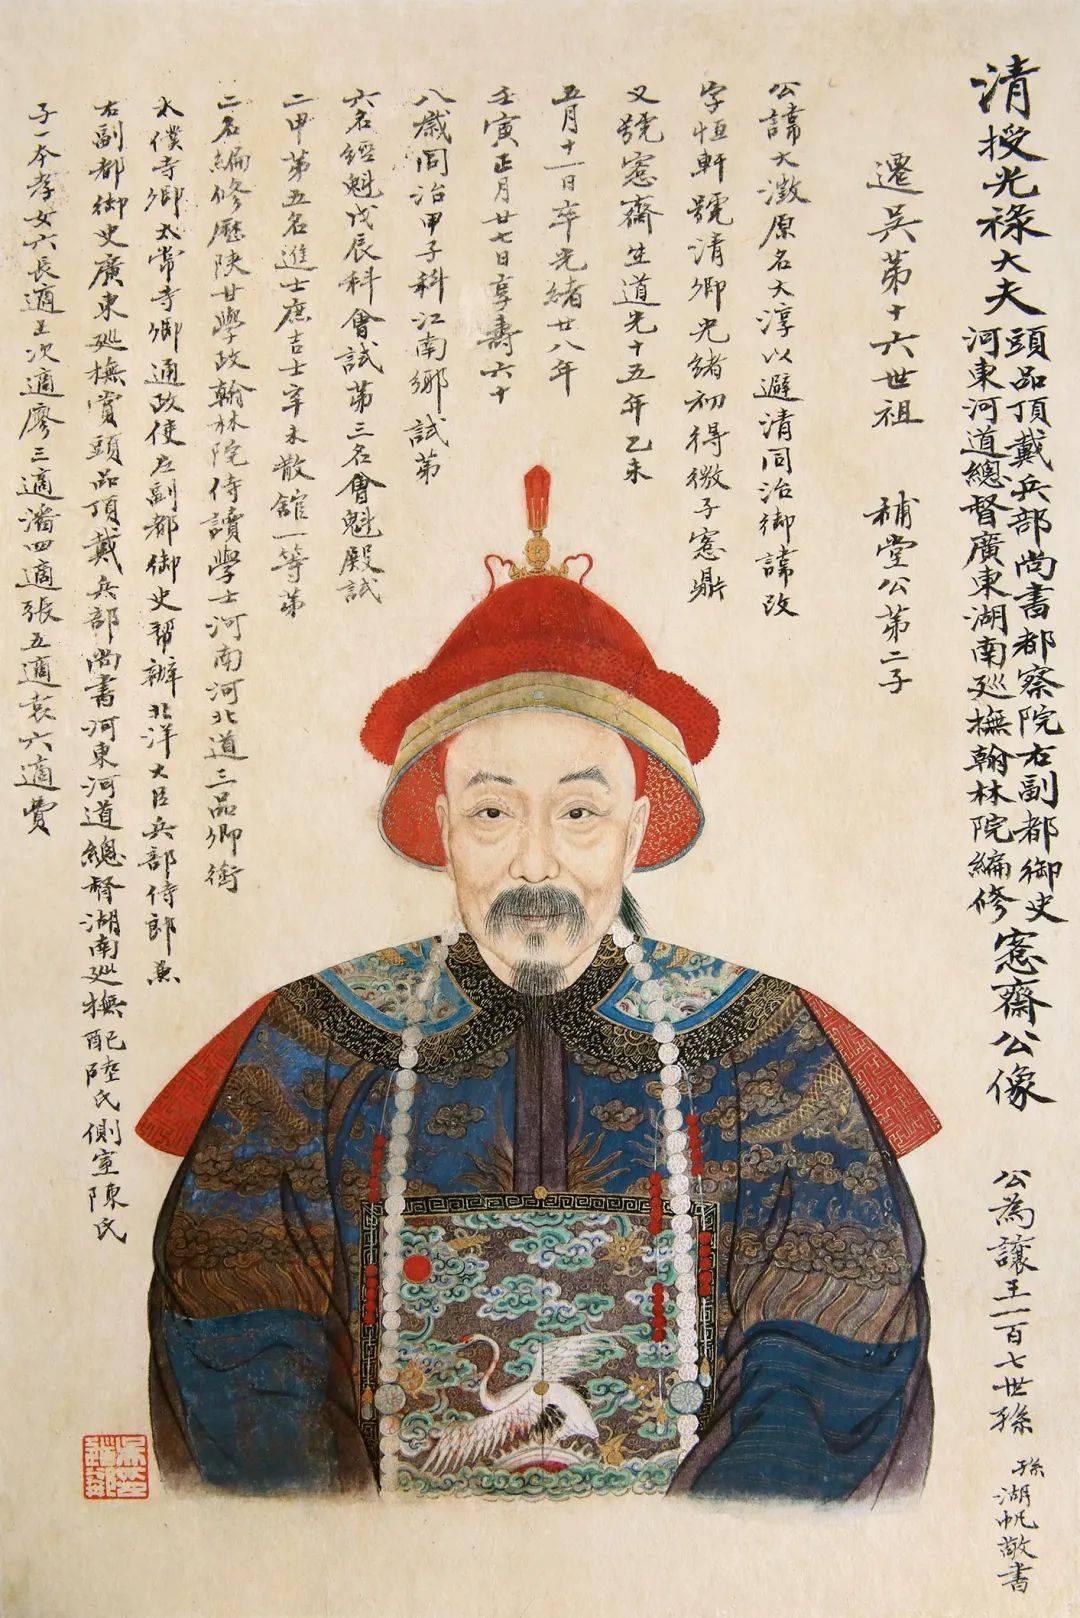 清授光祿大夫
頭品頂戴兵部尚書都察院右副都御史
河東河道總督廣東湖南巡撫翰林院編修
愙齋公像
公為讓王一百七世孫
孫湖帆敬書
遷吳第十六世祖 補堂公第二子
公諱大澂原名大淳以避清同治御諱改
字恒軒號清卿光緒初得微子愙鼎
又號愙齋生道光十五年乙未
五月十一日卒光緒廿八年
壬寅正月廿七日享壽六十
八歲同治甲子科江南鄉試第
六名經魁戊辰科會試第三名會魁殿試
二甲第五名進士庶吉士辛未散館一等第
二名編修歷陝甘學政翰林院侍讀學士河南河北道三品卿銜
太僕寺卿太常寺卿通政使左副都御史幫辦北洋大臣兵部侍郎兼
右副都御史廣東巡撫賞頭品頂戴兵部尚書河東河道總督湖南巡撫配陸氏側室陳氏
子一本孝女六長適王次適廖三適潘四適張五適袁六適費